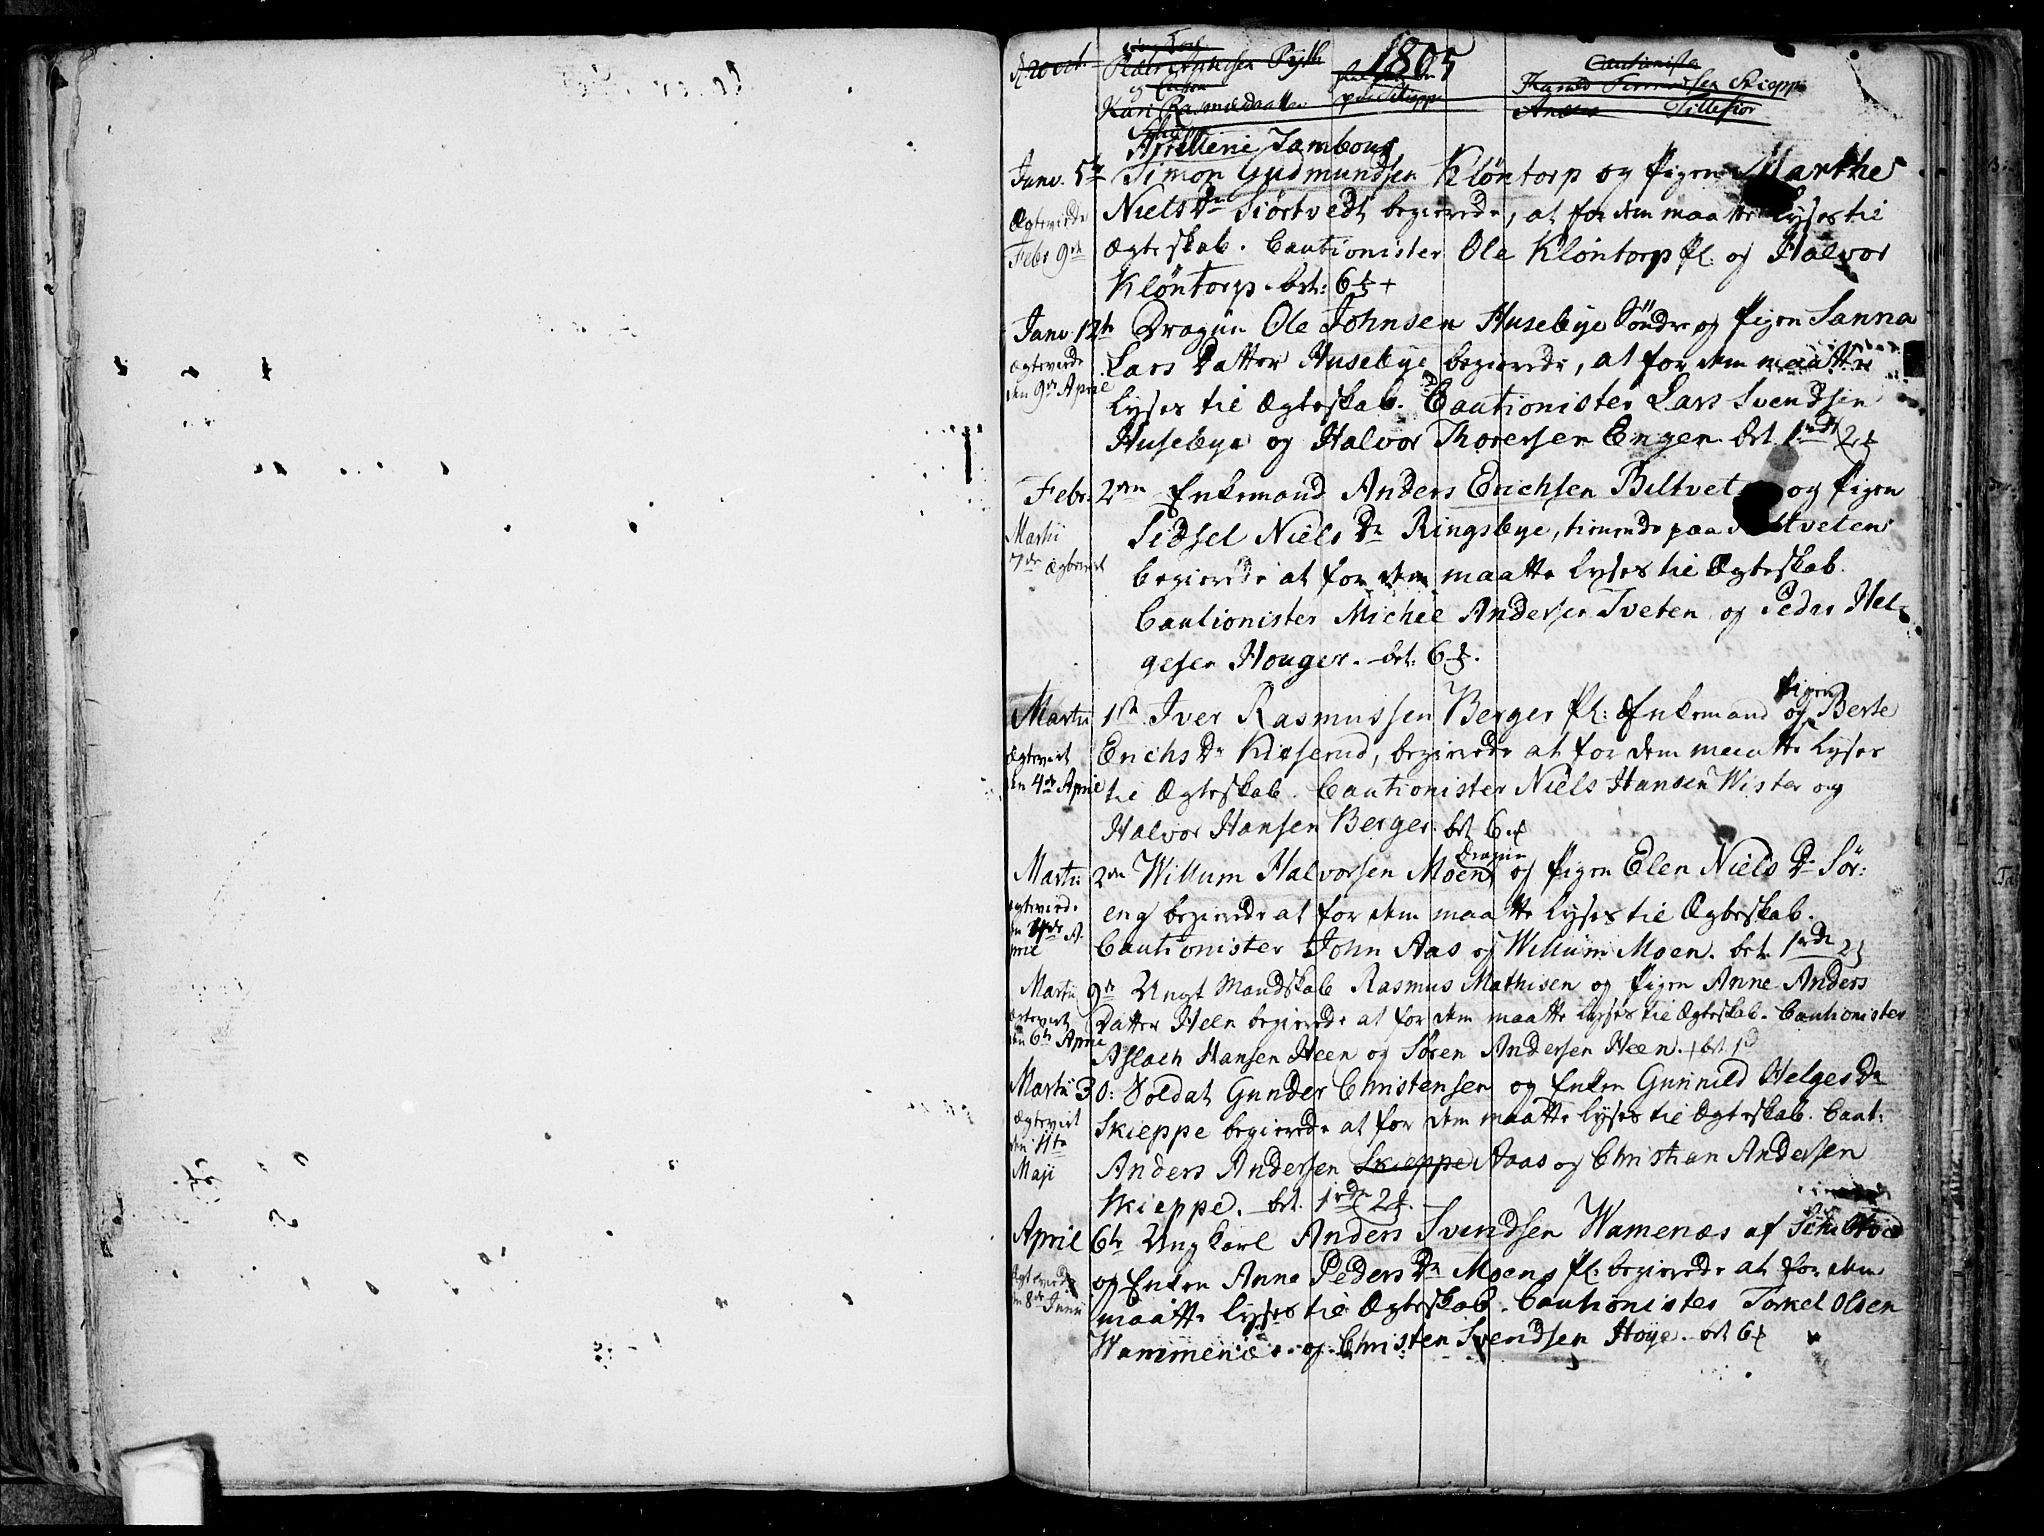 1805
Cautionister
Artillerie Tambour
Janv. 5te Simon Gudmundsen Klöntorp og Pigen Marthe
Ægteviede Niels Dr Siørtvedt begierede, at for dem maatte lyses til
Febr 9de Ægteskab. Cautionister Ole Klöntorp Pl. og Halvor
Klöntorp. bet: 6
Janv. 12te Dragun Ole Johnsen Husebye Söndre og Pigen Sanna
Ægteviede Lars Datter Husebye begierede, at for dem maatte
den 9de April lyses til Ægteskab. Cautionister Lars Svendsen
Husebye og Halvor Thoresen Engen. bet. 1rdr 2
Febr: 2den Enkemand Anders Erichsen Biltvet og Pigen
Martii Sidsel Niels Dr Ringsbye, tienende paa Biltveten
7de Ægteviet begierede at for dem maatte lyses til Ægteskab.
Cautionister Michel Andersen Tveten og Peder Hel-
gesen Houger. bet: 6
Pigen
Martii 1ste Iver Rasmussen Berger Pl: Enkemand og Berte
Ægteviet Erichs Dr Kieserud, begierede at for dem maatte lyses
den 4de April til Ægteskab. Cautionister Niels Hansen Wister og
Halvor Hansen Berger. bet 6
Dragun
Martii 2den Willum Halvorsen Moen og Pigen Elen Niels Dr Sör:
Ægteviede eng begierede at for dem maatte lyses til Ægteskab.
den 4de A-
pril Cautionister John Aas og Willum Moen. bet. 1rdr 2
Martii 9de Ungt Mandskab Rasmus Mathisen og Pigen Anne Anders
Ægteviet Datter Heen begierede at for dem maatte lyses til Ægteskab. Cautionister
den 6te April Aslach Hansen Heen og Sören Andersen Heen. bet. 1
Martii 30: Soldat Gunder Christensen og Enken Gunnild Helges Dr
Ægteviet Skieppe begierede at for dem maatte lyses til Ægteskab. Caut:
den 11te
Maji Anders Andersen Skieppe Aaas og Christian Andersen
Skieppe. bet. 1rdr 2
April 6te Ung Karl Anders Svendsen Wamenæs af
Ægteviede og Enken Anne Peders Dr Moens Pl. begierede at for dem
den 8de Junii maatte lyses til Ægteskab. Cautionister Torkel Olsen
Wammenæs og Christen Svendsen Höye. bet 6